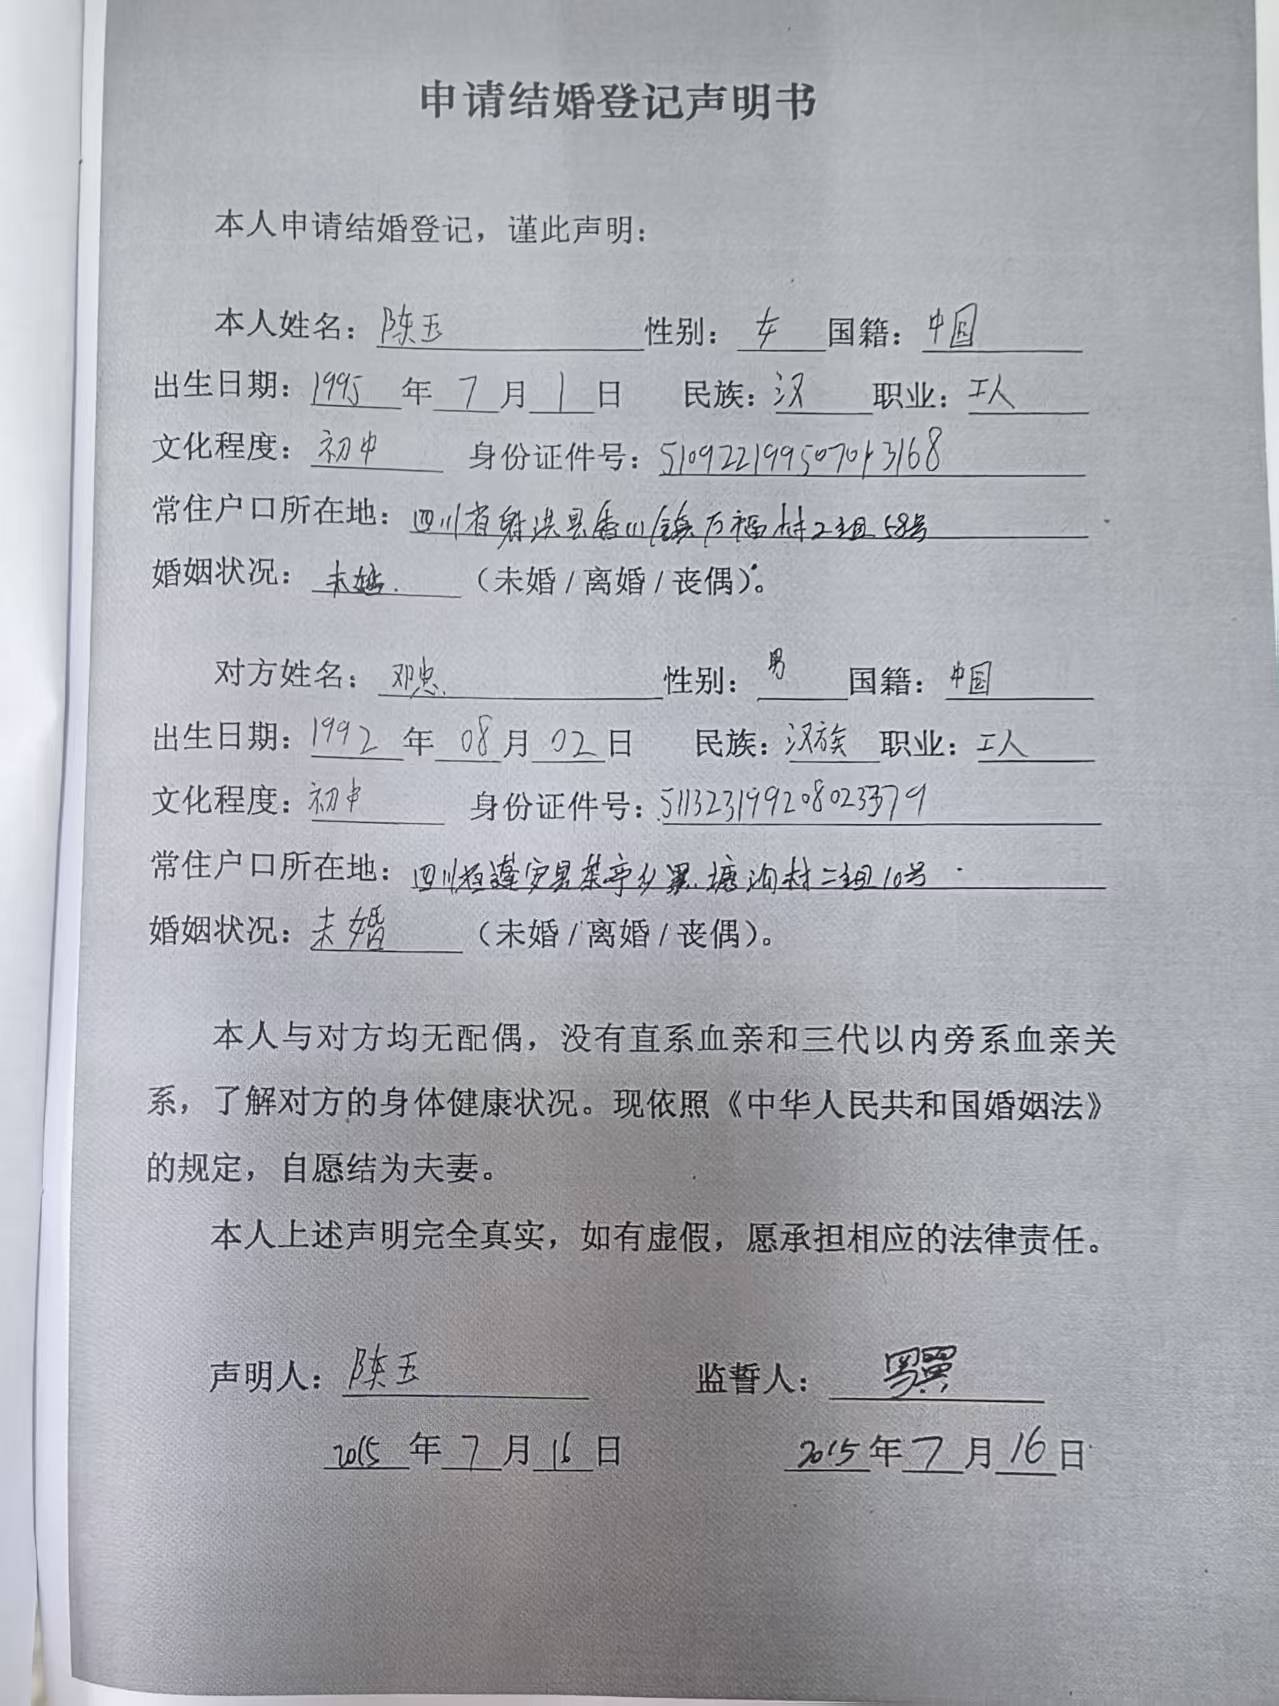 申请结婚登记声明书
本人申请结婚登记，谨此声明：
本人姓名：陈玉 性别：女 国籍：中国
出生日期：1995 年 7 月 1 日 民族：汉 职业：工人
文化程度：初中 身份证件号：510922199507013168
常住户口所在地：四川省射洪县香山镇万福村2组58号
婚姻状况：未婚. （未婚/离婚/丧偶）。
对方姓名：邓忠 性别：男 国籍：中国
出生日期：1992 年 08 月 02 日 民族：汉族 职业：工人
文化程度：初中 身份证件号：511323199208023379
常住户口所在地：四川省蓬安县茶亭乡黑塘沟村二组10号
婚姻状况：未婚 （未婚/离婚/丧偶）。
本人与对方均无配偶，没有直系血亲和三代以内旁系血亲关
系，了解对方的身体健康状况。现依照《中华人民共和国婚姻法》
的规定，自愿结为夫妻。
本人上述声明完全真实，如有虚假，愿承担相应的法律责任。
声明人：陈玉 监誓人：
2015 年 7 月 16 日 2015 年 7 月 16 日